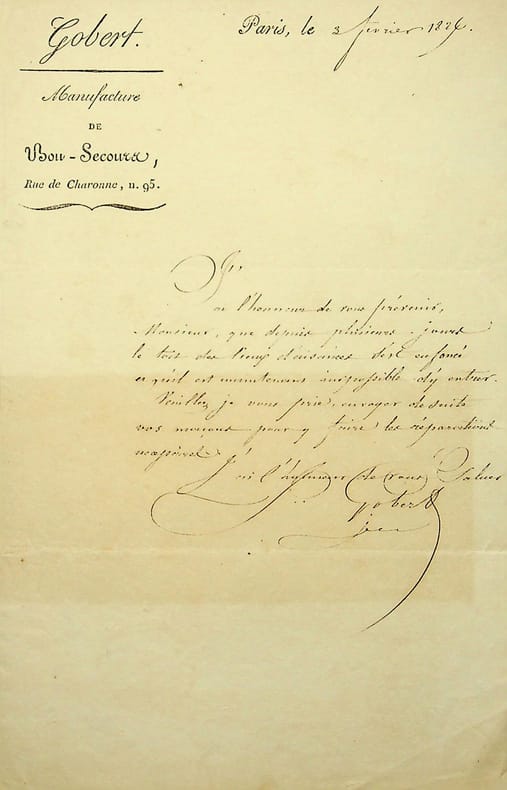 Gobert.
Paris, le 3 février 182
Manufacture
DE
Bon-Secours,
Rue de Charonne, n. 95.
J'ai
l'honneur de vous prévenir,
Monsieur, que depuis plusieurs jours
le toit des lieux d'aisances s'est enfoncé
et qu'il est maintenant impossible d'y entrer.
Veuillez, je vous prie, envoyer de suite
vos maçons pour y faire les réparations
J'ai l'honneur de vous Saluer
Gobert